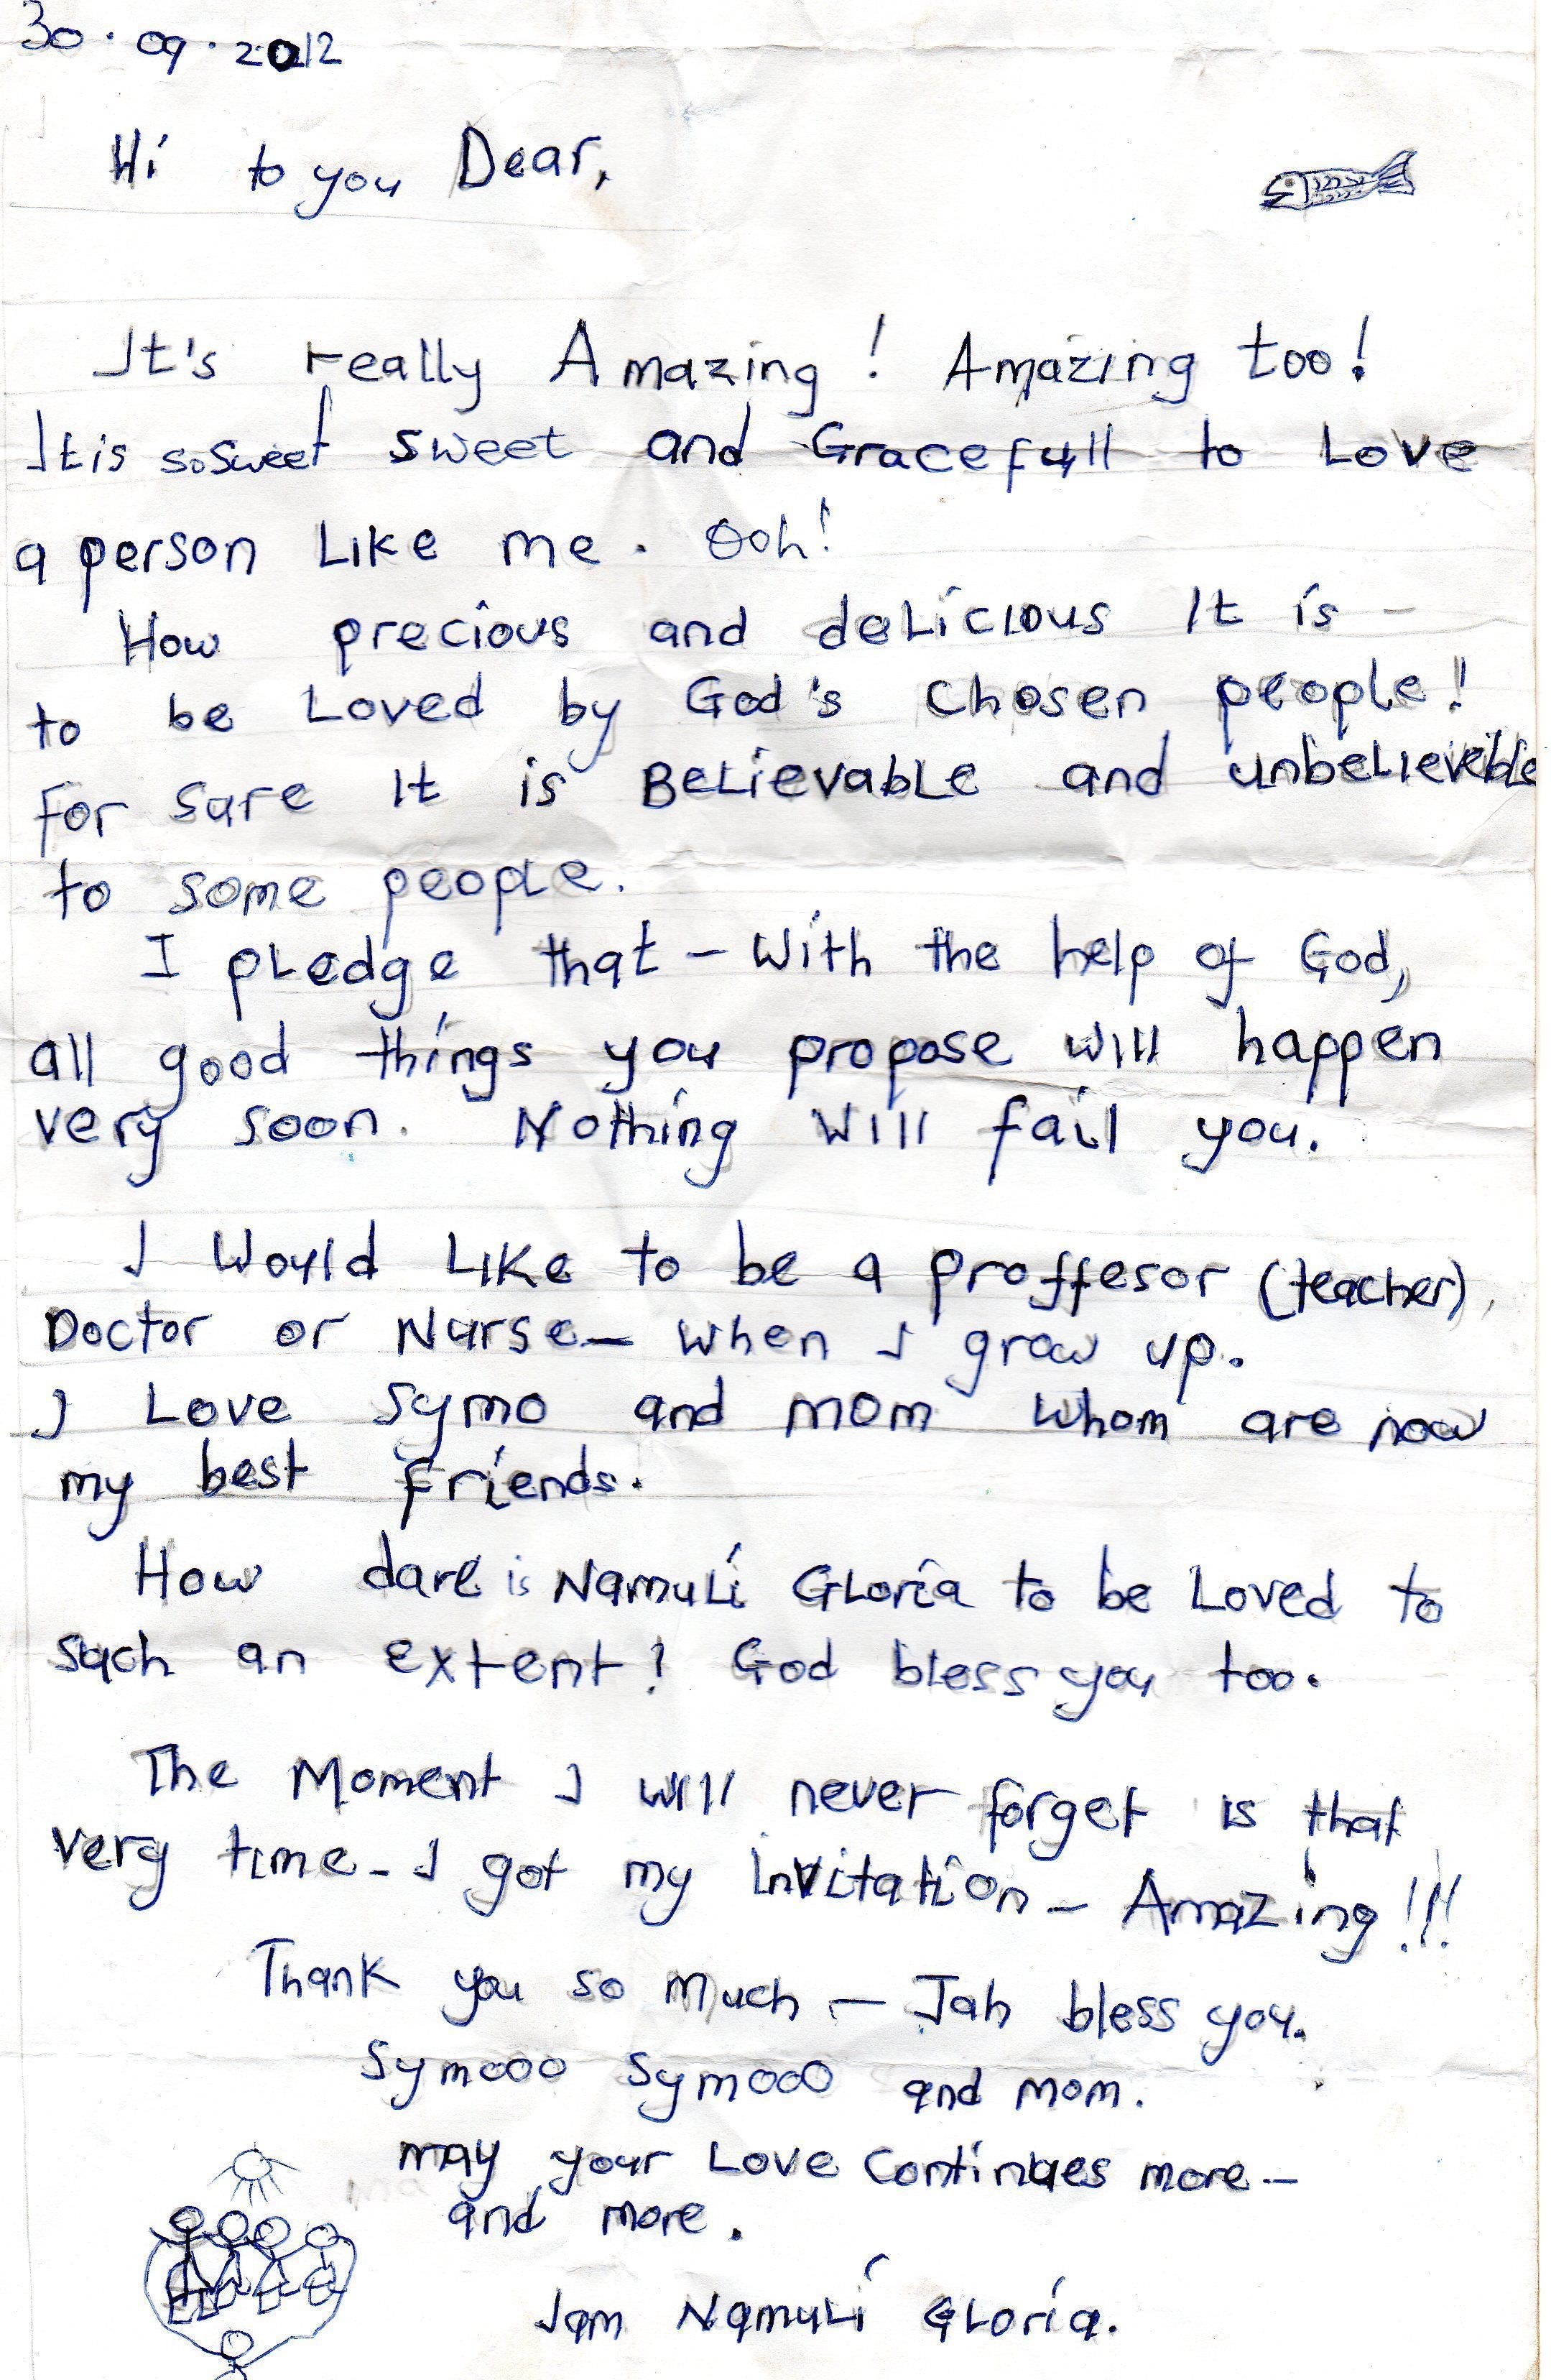 30.09.2012
Hi to you Dear,
It's really Amazing! Amazing too!
It is so sweet sweet and Gracefull to Love
a person Like me. Ooh!
How precious and deLicious It is -
to be Loved by God's chosen people!
For sure It is BeLievabLe and unbeLieveble
to some peopLe.
I pLedge that - With the help of God,
all good things you propose will happen
very soon. Nothing will fail you.
I Would Like to be a proffesor (teacher),
Doctor or Nurse - when I grow up.
I Love Symo and mom whom are now
my best friends.
How dare is NamuLi GLoria to be Loved to
such an extent? God bless you too.
The Moment I will never forget is that
very time - I got my invitation - Amazing!!!
Thank you so much - Jah bless you.
Symooo Symooo and mom.
may your Love continues more -
and more.
Iam NamuLi GLoria.